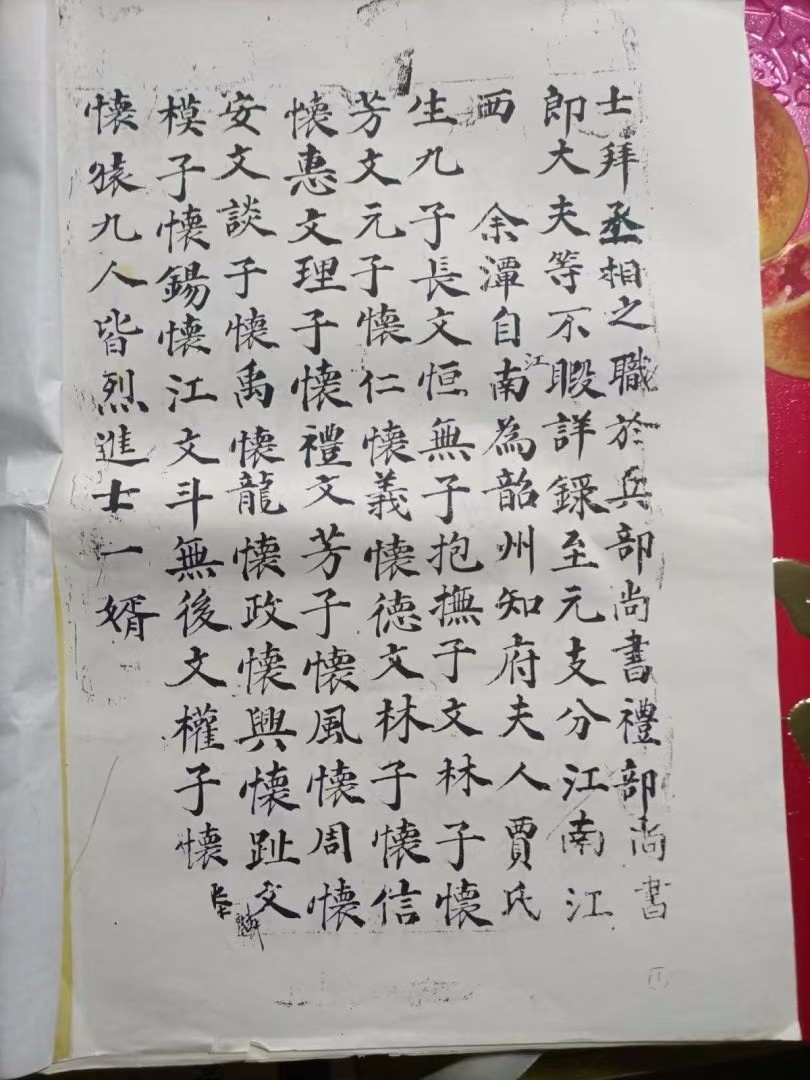 士拜丞相之職於兵部尚書禮部尚書
郎大夫等不暇詳錄至元支分江南江
西
余潭自南江為韶州知府夫人賈氏
生九子長文恒無子抱撫子文林子懷
芳文元子懷仁懷義懷德文林子懷信
懷惠文理子懷禮文芳子懷風懷周懷
安文談子懷禹懷龍懷政懷興懷趾文
模子懷錫懷江文斗無後文權子懷
懷猿九人皆烈進士一婿